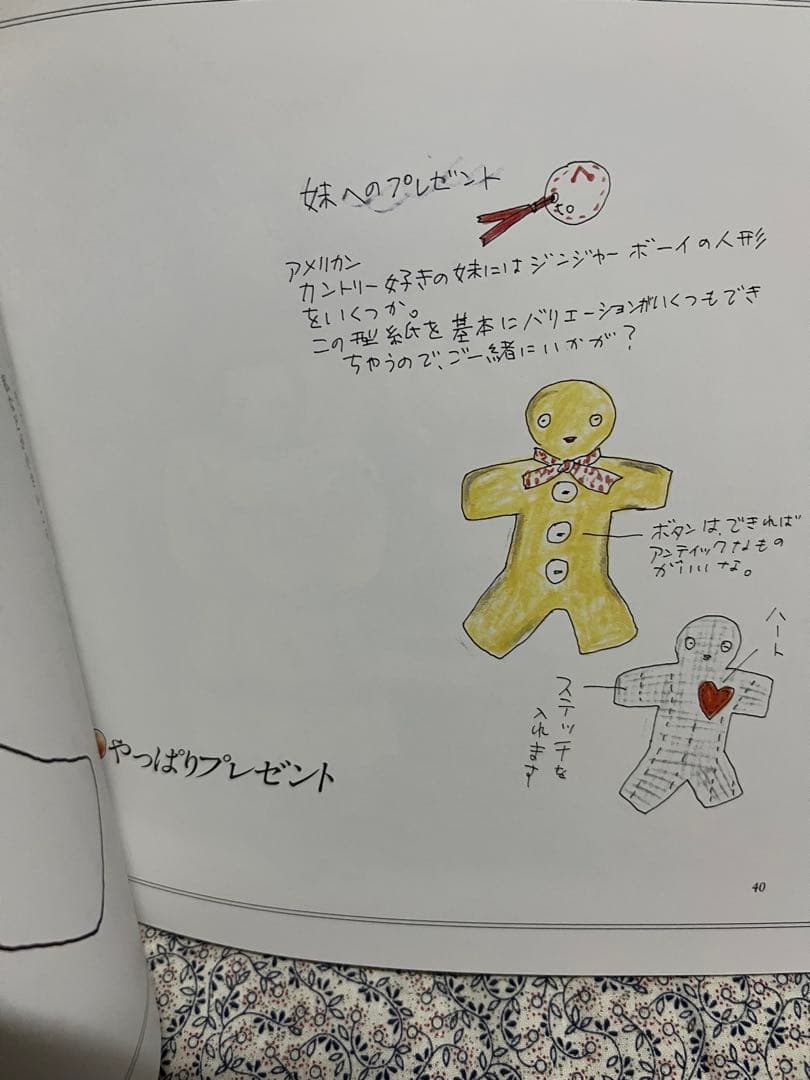 妹へのプレゼント
アメリカン
カントリー好きの妹にはジンジャーボーイの人形
をいくつか。
この型紙を基本にバリエーションがいくつもでき
ちゃうので、ご一緒にいかが?
ボタンは、できれば
アンティックなもの
がいいな。
ハート
ステッチを
入れます
やっぱりプレゼント
40